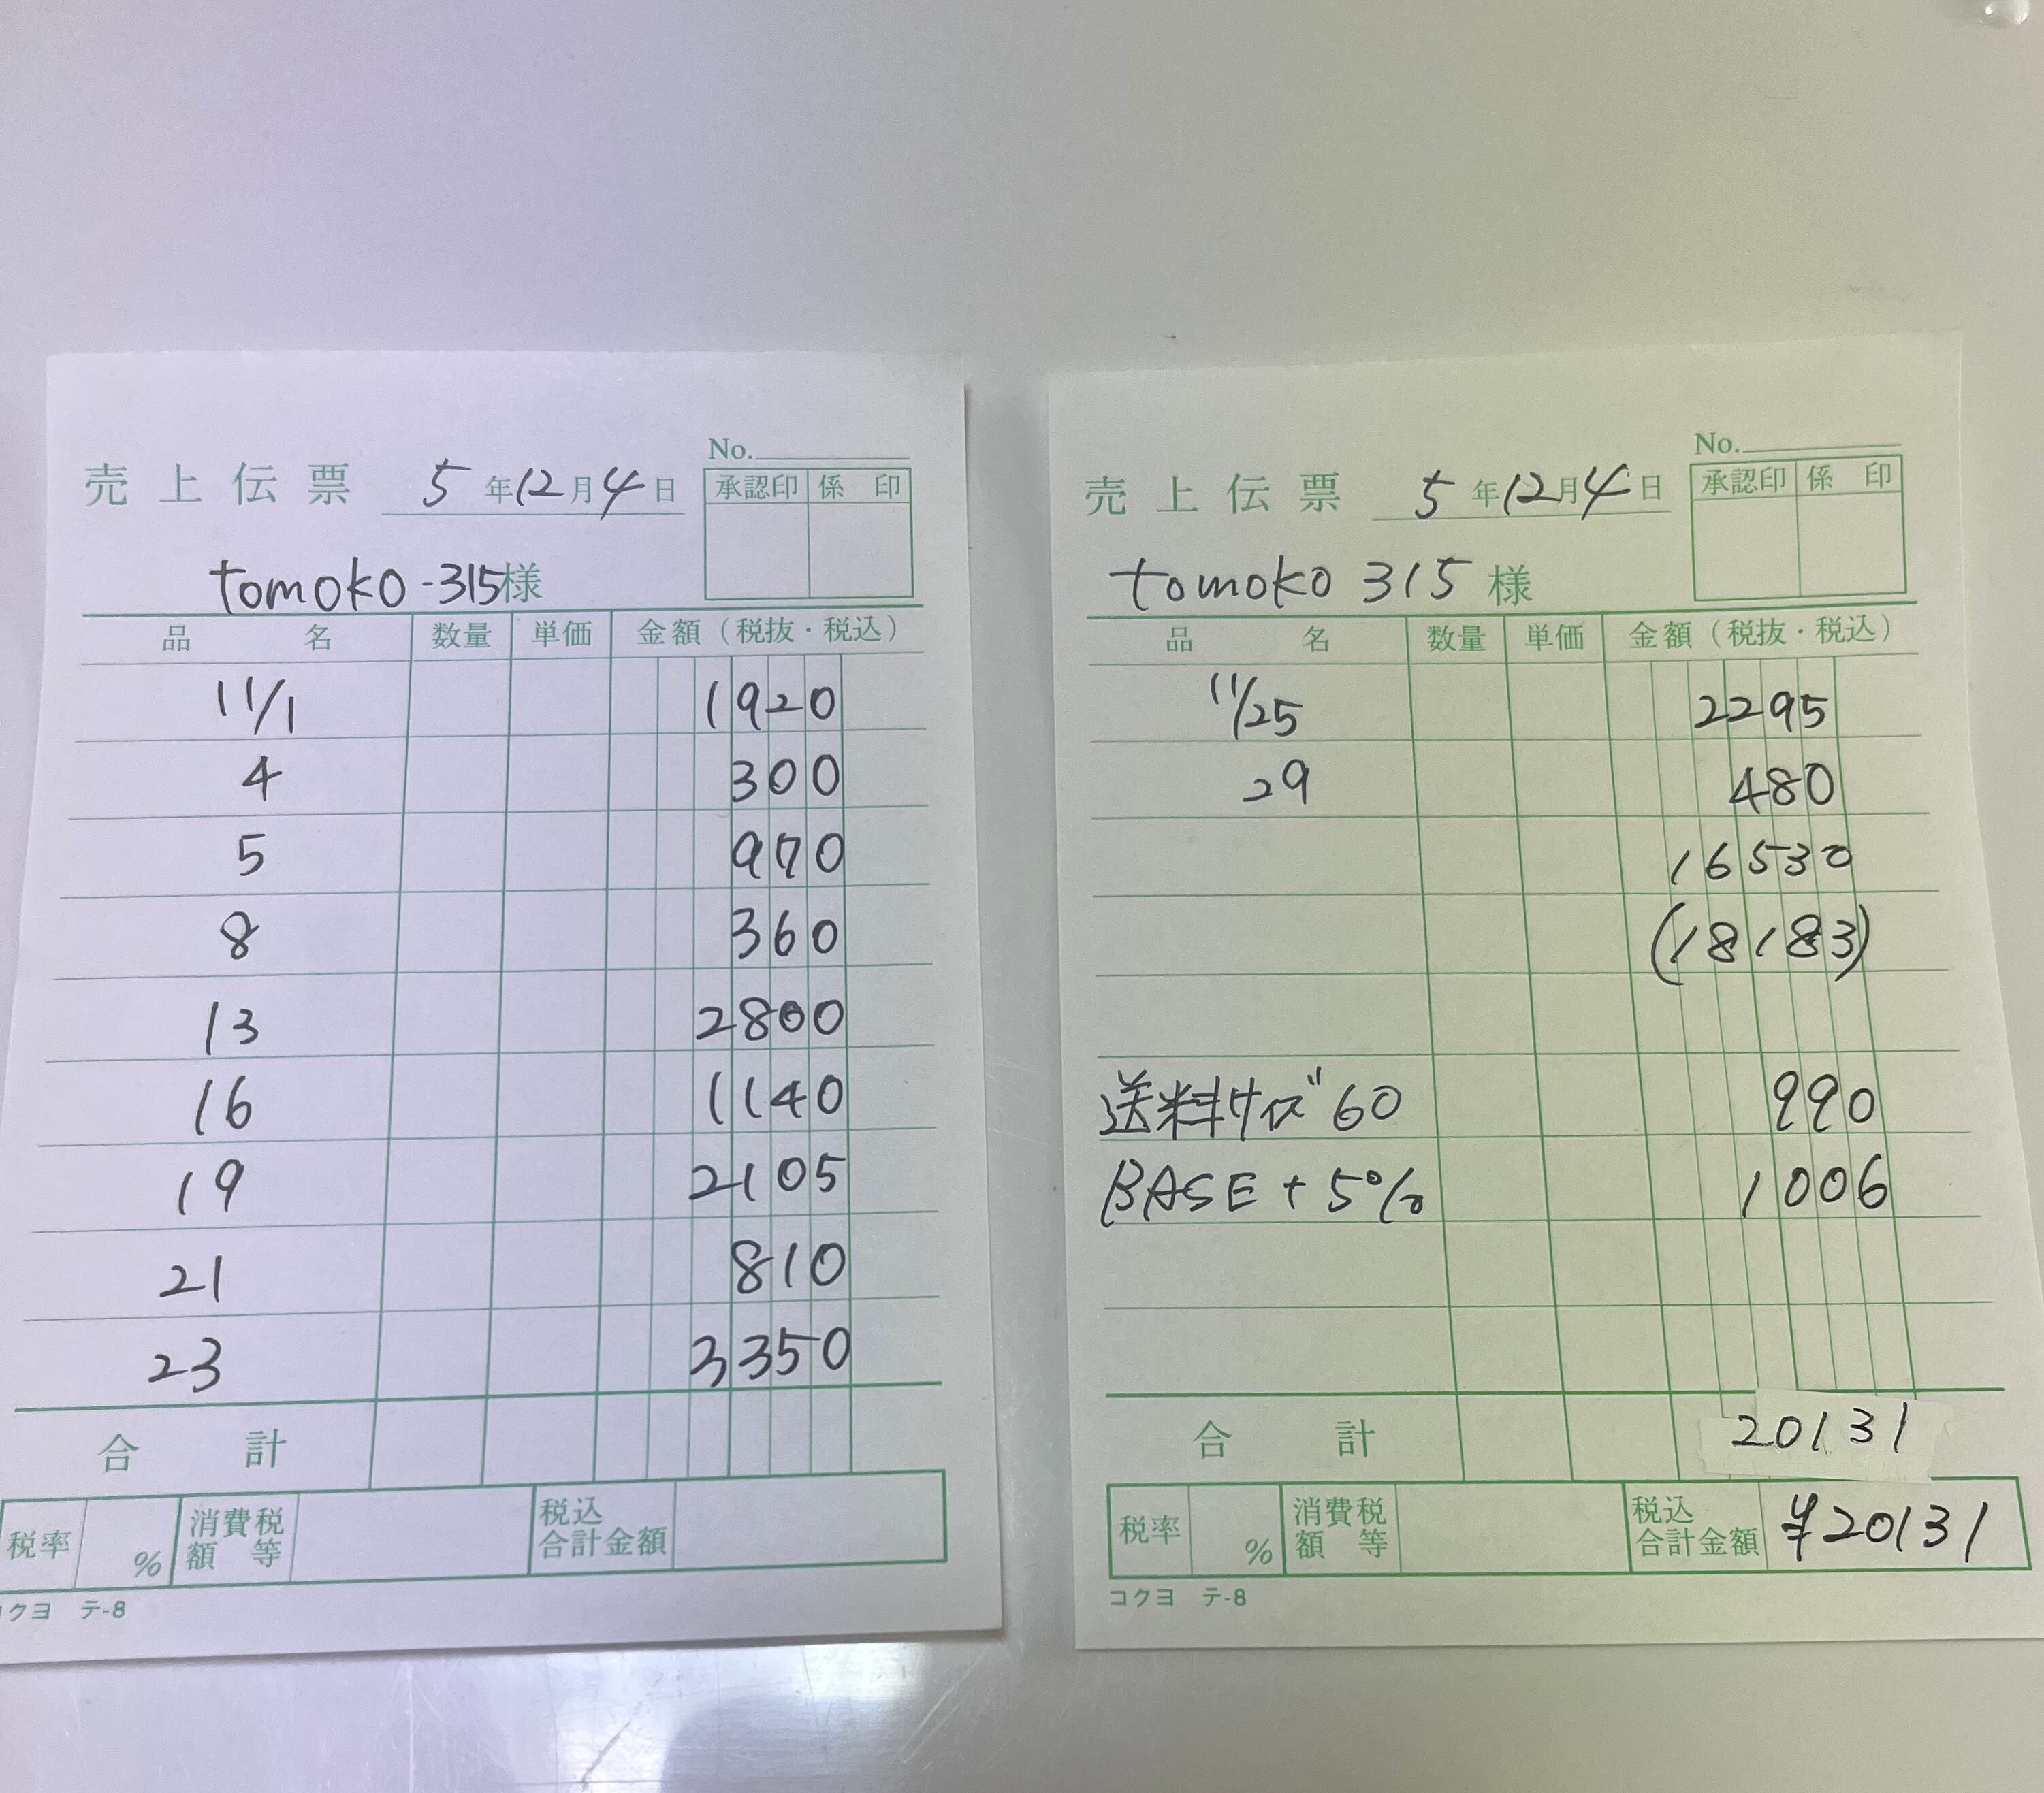 No.
売上伝票 5年12月4日
承認印 係印
tomoko-315様
品名 数量 単価 金額(税抜・税込)
11/1 1920
4 300
5 970
8 360
13 2800
16 1140
19 2105
21 810
23 3350
合計
税率 % 消費税額等 税込合計金額
コクヨ テ-8
No.
売上伝票 5年12月4日
承認印 係印
tomoko 315様
品名 数量 単価 金額(税抜・税込)
11/25 2295
29 480
16530
(18183)
送料サイズ60 990
BASE+5% 1006
合計 20131
税率 % 消費税額等 税込合計金額 ¥20131
コクヨ テ-8